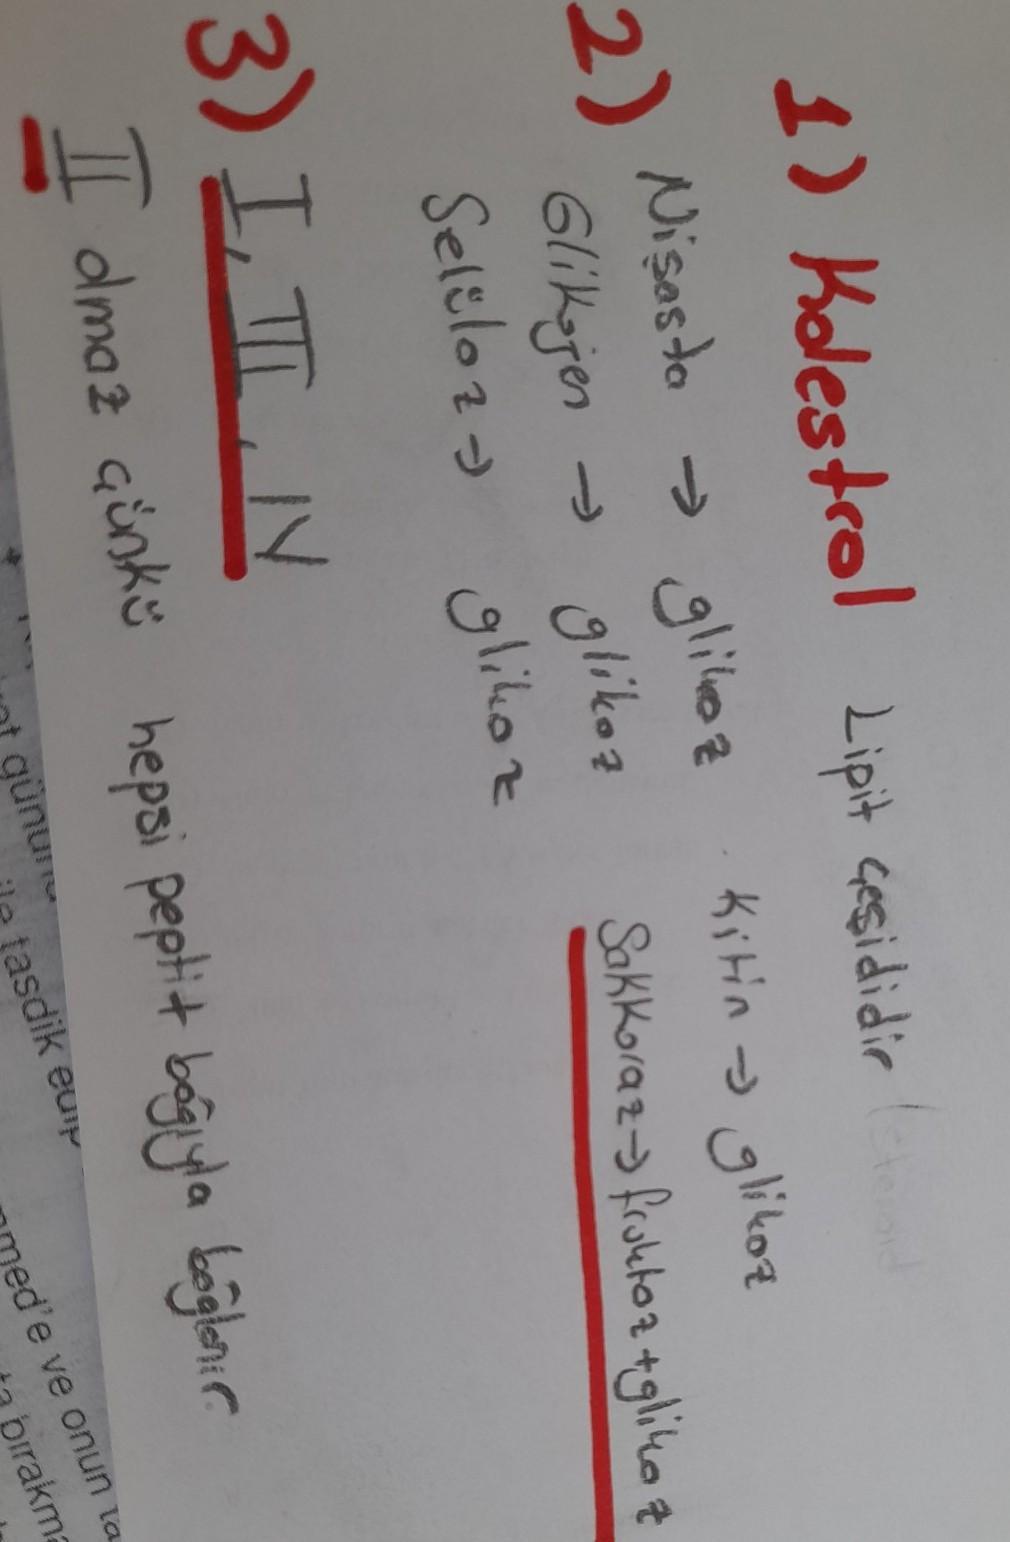 1) Kolestrol Lipit çeşididir (steroid
2) Nişasta → glikoz Kitin → glikoz
Glikojen → glikoz Sakkoraz → fruktoz + glikoz
Selüloz → glikoz
3) I, III, IV
II olmaz çünkü hepsi peptit bağıyla bağlanır.
ile tasdik edip
med'e ve onun